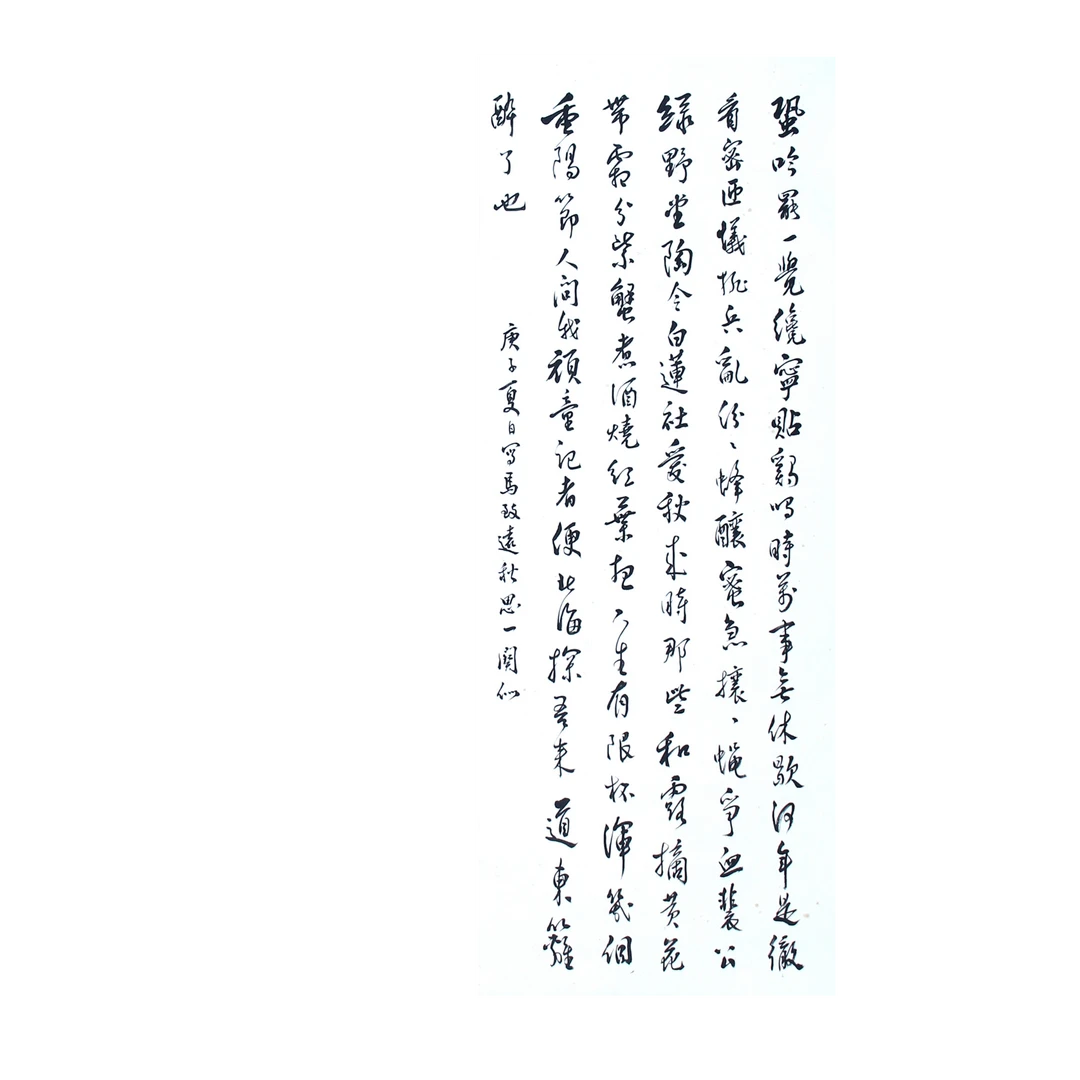 蛩吟罷一覺纔寧貼鷄鳴時萬事無休歇何年是徹
看密匝蟻排兵亂紛、蜂釀蜜急攘、蠅爭血裴公
綠野堂陶令白蓮社愛秋來時那些和露摘黃花
帶霜分紫蟹煮酒燒紅葉想人生有限杯渾幾個
重陽節人問我頑童記者便北海探吾來道東籬
醉了也
庚子夏日寫馬致遠秋思一闋